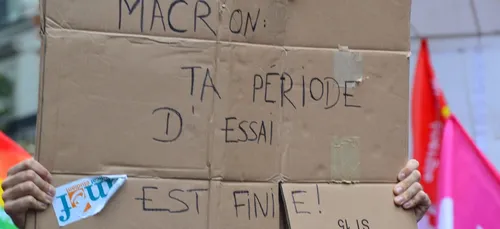 MACRON:
TA PÉRIODE
D'ESSAI
EST FINIE!